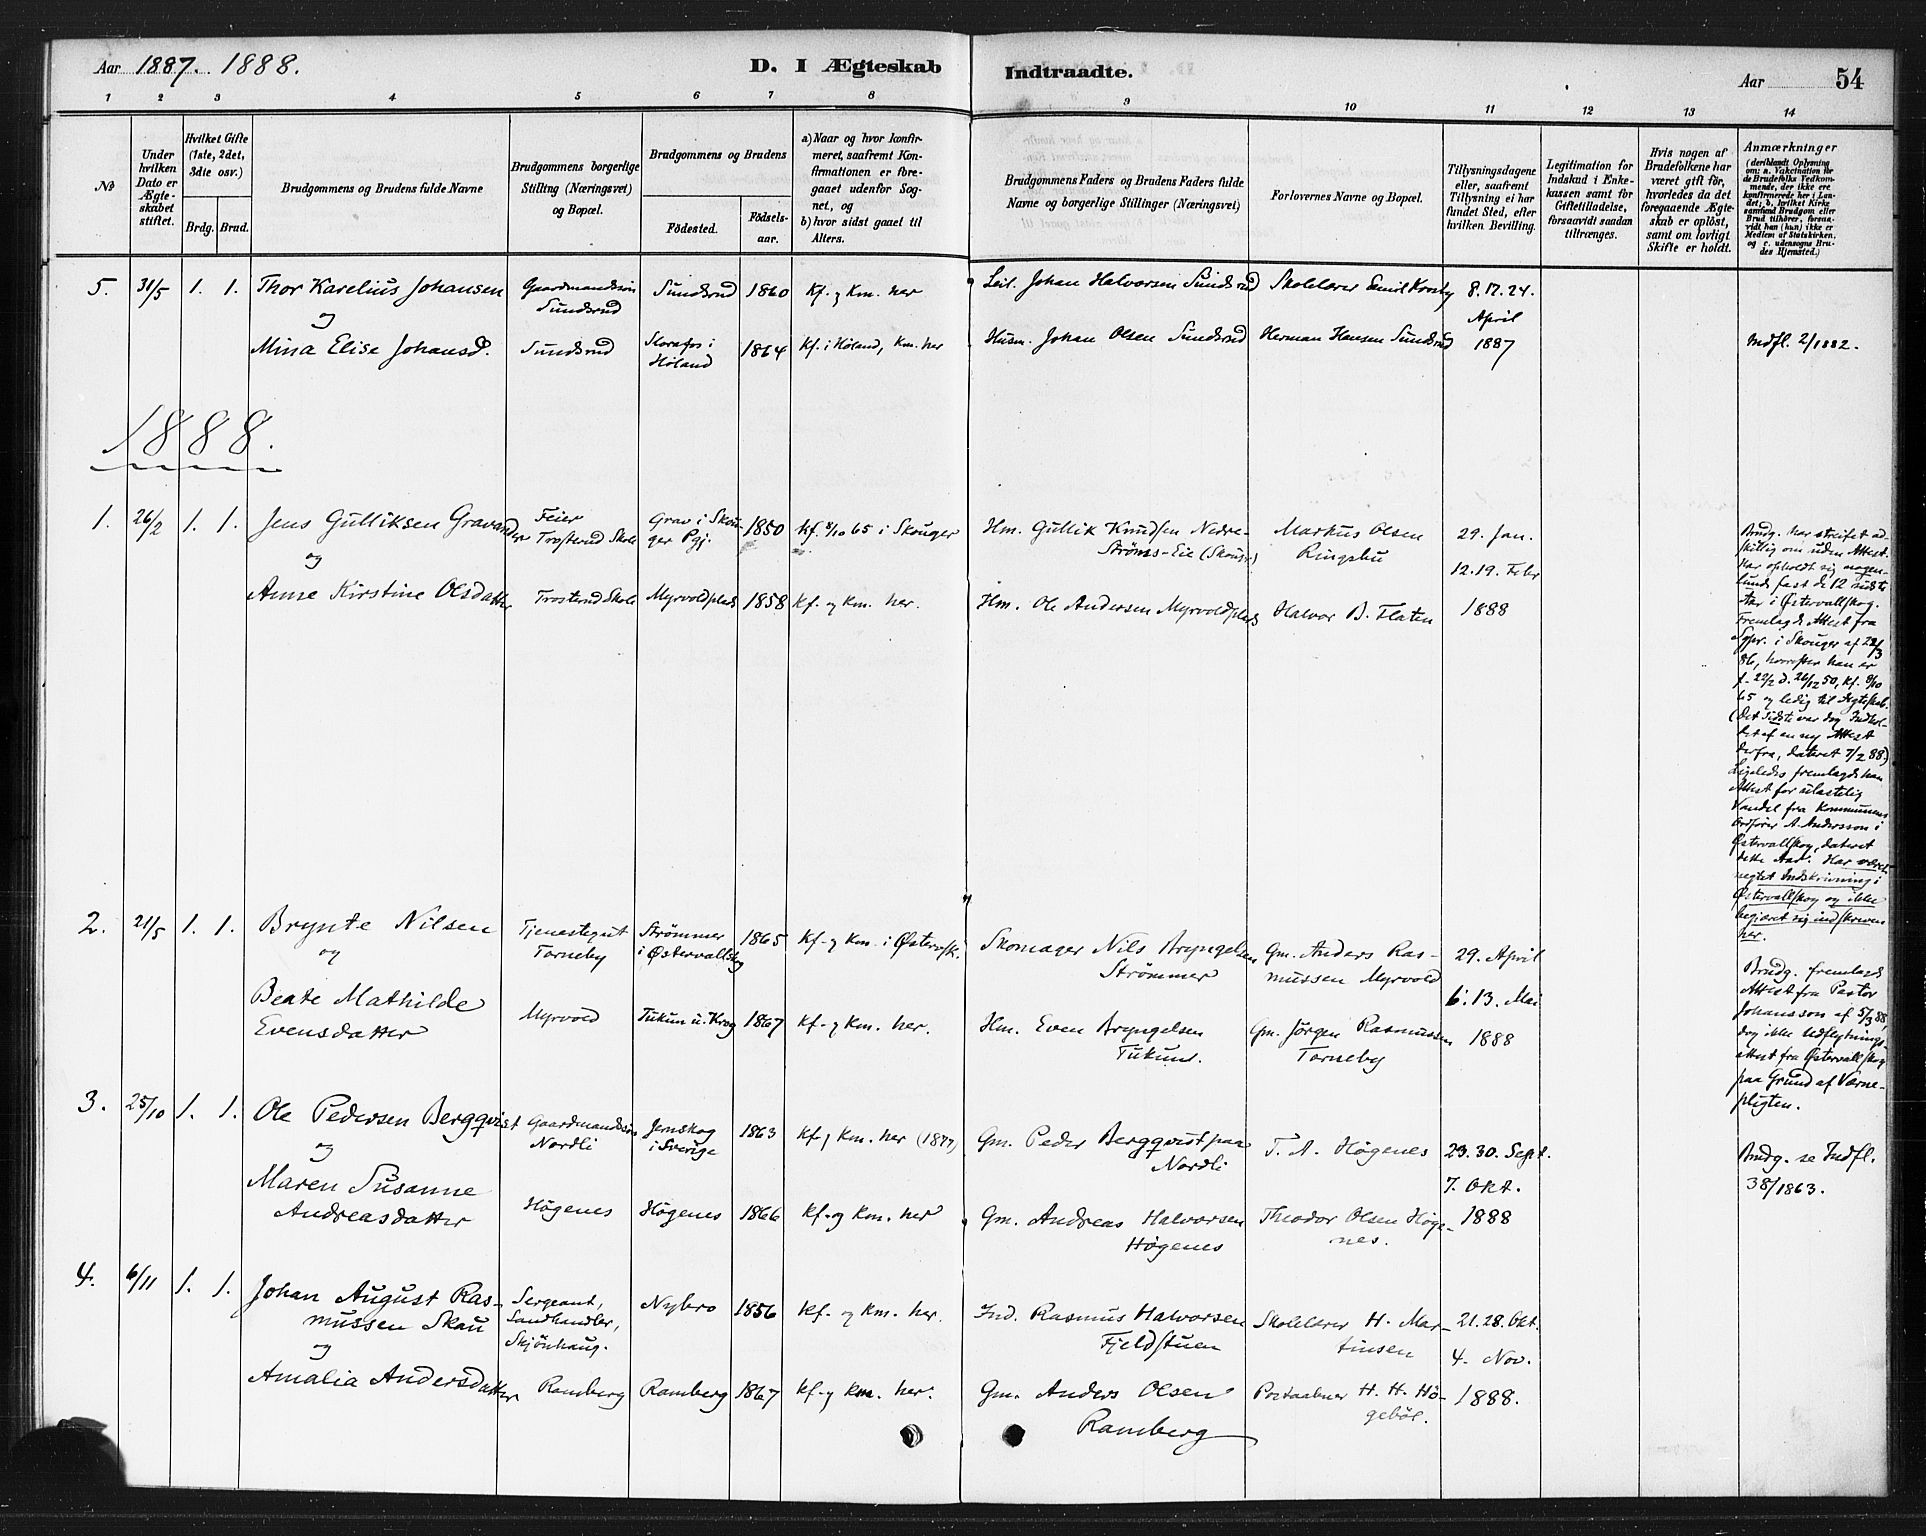 Aar 1887. 1888.
D. I Ægteskab Indtraadte.
Aar 54
1 2 3 4 5 6 7 8 9 10 11 12 13 14
№
Under hvilken Dato er Ægteskabet stiftet.
Hvilket Gifte (1ste, 2det, 3die osv.)
Brdg. Brud.
Brudgommens og Brudens fulde Navne
Brudgommens borgerlige Stilling (Næringsvei) og Bopæl.
Brudgommens og Brudens
Fødested.
Fødselsaar.
a) Naar og hvor konfirmeret, saafremt Konfirmationen er foregaaet udenfor Sognet, og
b) hvor sidst gaaet til Alters.
Brudgommens Faders og Brudens Faders fulde Navne og borgerlige Stillinger (Næringsvei)
Forlovernes Navne og Bopæl.
Tillysningsdagene eller, saafremt Tillysning ei har fundet Sted, efter hvilken Bevilling.
Legitimation for Indskud i Enkekassen samt for Giftetilladelse, forsaavidt saadan tiltrænges.
Hvis nogen af Brudefolkene har været gift før, hvorledes da det foregaaende Ægteskab er opløst, samt om lovligt Skifte er holdt.
Anmærkninger
(deriblandt Oplysning om: a. Vakcination for de Brudefolks Vedkommende, der ikke ere konfirmerede her i Landet; b. hvilket Kirkesamfund Brudgom eller Brud tilhører, forsaavidt han (hun) ikke er Medlem af Statskirken, og c. udensogns Brudes Hjemsted.)
5. 31/5 1. 1. Thor Karelius Johansen Gaardmandssøn Sundsrud Sundsrud 1860 Kf. og Km. her Leil. Johan Halvorsen Sundsrud Skolelærer Emil Krosby 8. 17. 24. April 1887
og
Mina Elise Johansd. Sundsrud Skorafos i Høland 1864 Kf. i Høland, Km. her Husm. Johan Olsen Sundsrud Herman Hansen Sundsrud Indfl. 2/1882.
1888.
1. 26/2 1. 1. Jens Gulliksen Gravander Feier Trosterud Skole Grav i Skouger Pgj. 1850 Kf. 8/10 65 i Skouger Hm. Gullik Knudsen Nedre-Strøms-Eie (Skouger) Markus Olsen Ringsbu 29. Jan. 12. 19. Febr 1888
og
Anne Kirstine Olsdatter Trosterud Skole Myrvoldplads 1858 Kf. og Km. her. Hm. Ole Andersen Myrvoldplads Halvor B. Flaten
Brudg. har streifet ad-
skillig om uden Attest.
Har opholdt sig nogen-
lunde fast de 12 sidste
Aar i Østervallskog.
Fremlagde Attest fra
Sgpr. i Skouger af 22/3
86, hvorefter han er
f. 22/2 d. 26/12 50, Kf. 8/10
65 og ledig til Ægteskab.
(Det sidste var dog Indhol-
det af en ny Attest
derfra, dateret 7/2 88)
Ligeledes fremlagde han
Attest for ulastelig
Vandel fra Kommunens
Ordfører A. Andersson i
Østervallskog, dateret
dette Aar. Har været
negtet Indskrivning i
Østervallskog og ikke
begjæret sig indskreven
her.
2. 21/5 1. 1. Brynte Nilsen Tjenestegut Torneby Strömmer i Østervallskog 1865 Kf. og Km. i Østervsk. Skomager Nils Bryngelsen Strömmer Gm. Anders Rasmussen Myrvold 29. April 6. 13. Mai 1888
og
Beate Mathilde Evensdatter Myrvold Tukun u. Krog 1867 Kf. og Km. her. Hm. Even Bryngelsen Tukun. Gm. Jørgen Rasmussen Torneby
Brudg. fremlagde
Attest fra Pastor
Johansson af 5/3 88,
dog ikke Udflytnings-
attest fra Østervallskog
paa Grund af Værne-
pligten.
3. 25/10 1. 1. Ole Pedersen Bergqvist Gaardmandssøn Nordli Jernskog i Sverige 1863 Kf. og Km. her (1877) Gm. Peder Bergqvist paa Nordli T. A. Høgenes 23. 30. Sept. 7. Okt. 1888
og
Maren Susanne Andreasdatter Høgenes Høgenes 1866 Kf. og Km. her Gm. Andreas Halvorsen Høgenes Theodor Olsen Høgenes.
Brudg. se Indfl.
38/1863.
4. 6/11 1. 1. Johan August Rasmussen Skau Sergeant, Landhandler, Skjønhaug. Nybro 1856 Kf. og Km. her. Ind. Rasmus Halvorsen Fjeldstuen Skolelærer H. Martinsen 21. 28. Okt. 4. Nov. 1888.
og
Amalia Andersdatter Ramberg Ramberg 1867 Kf. og Km. her. Gm. Anders Olsen Ramberg Postaabner H. H. Høgebøl.